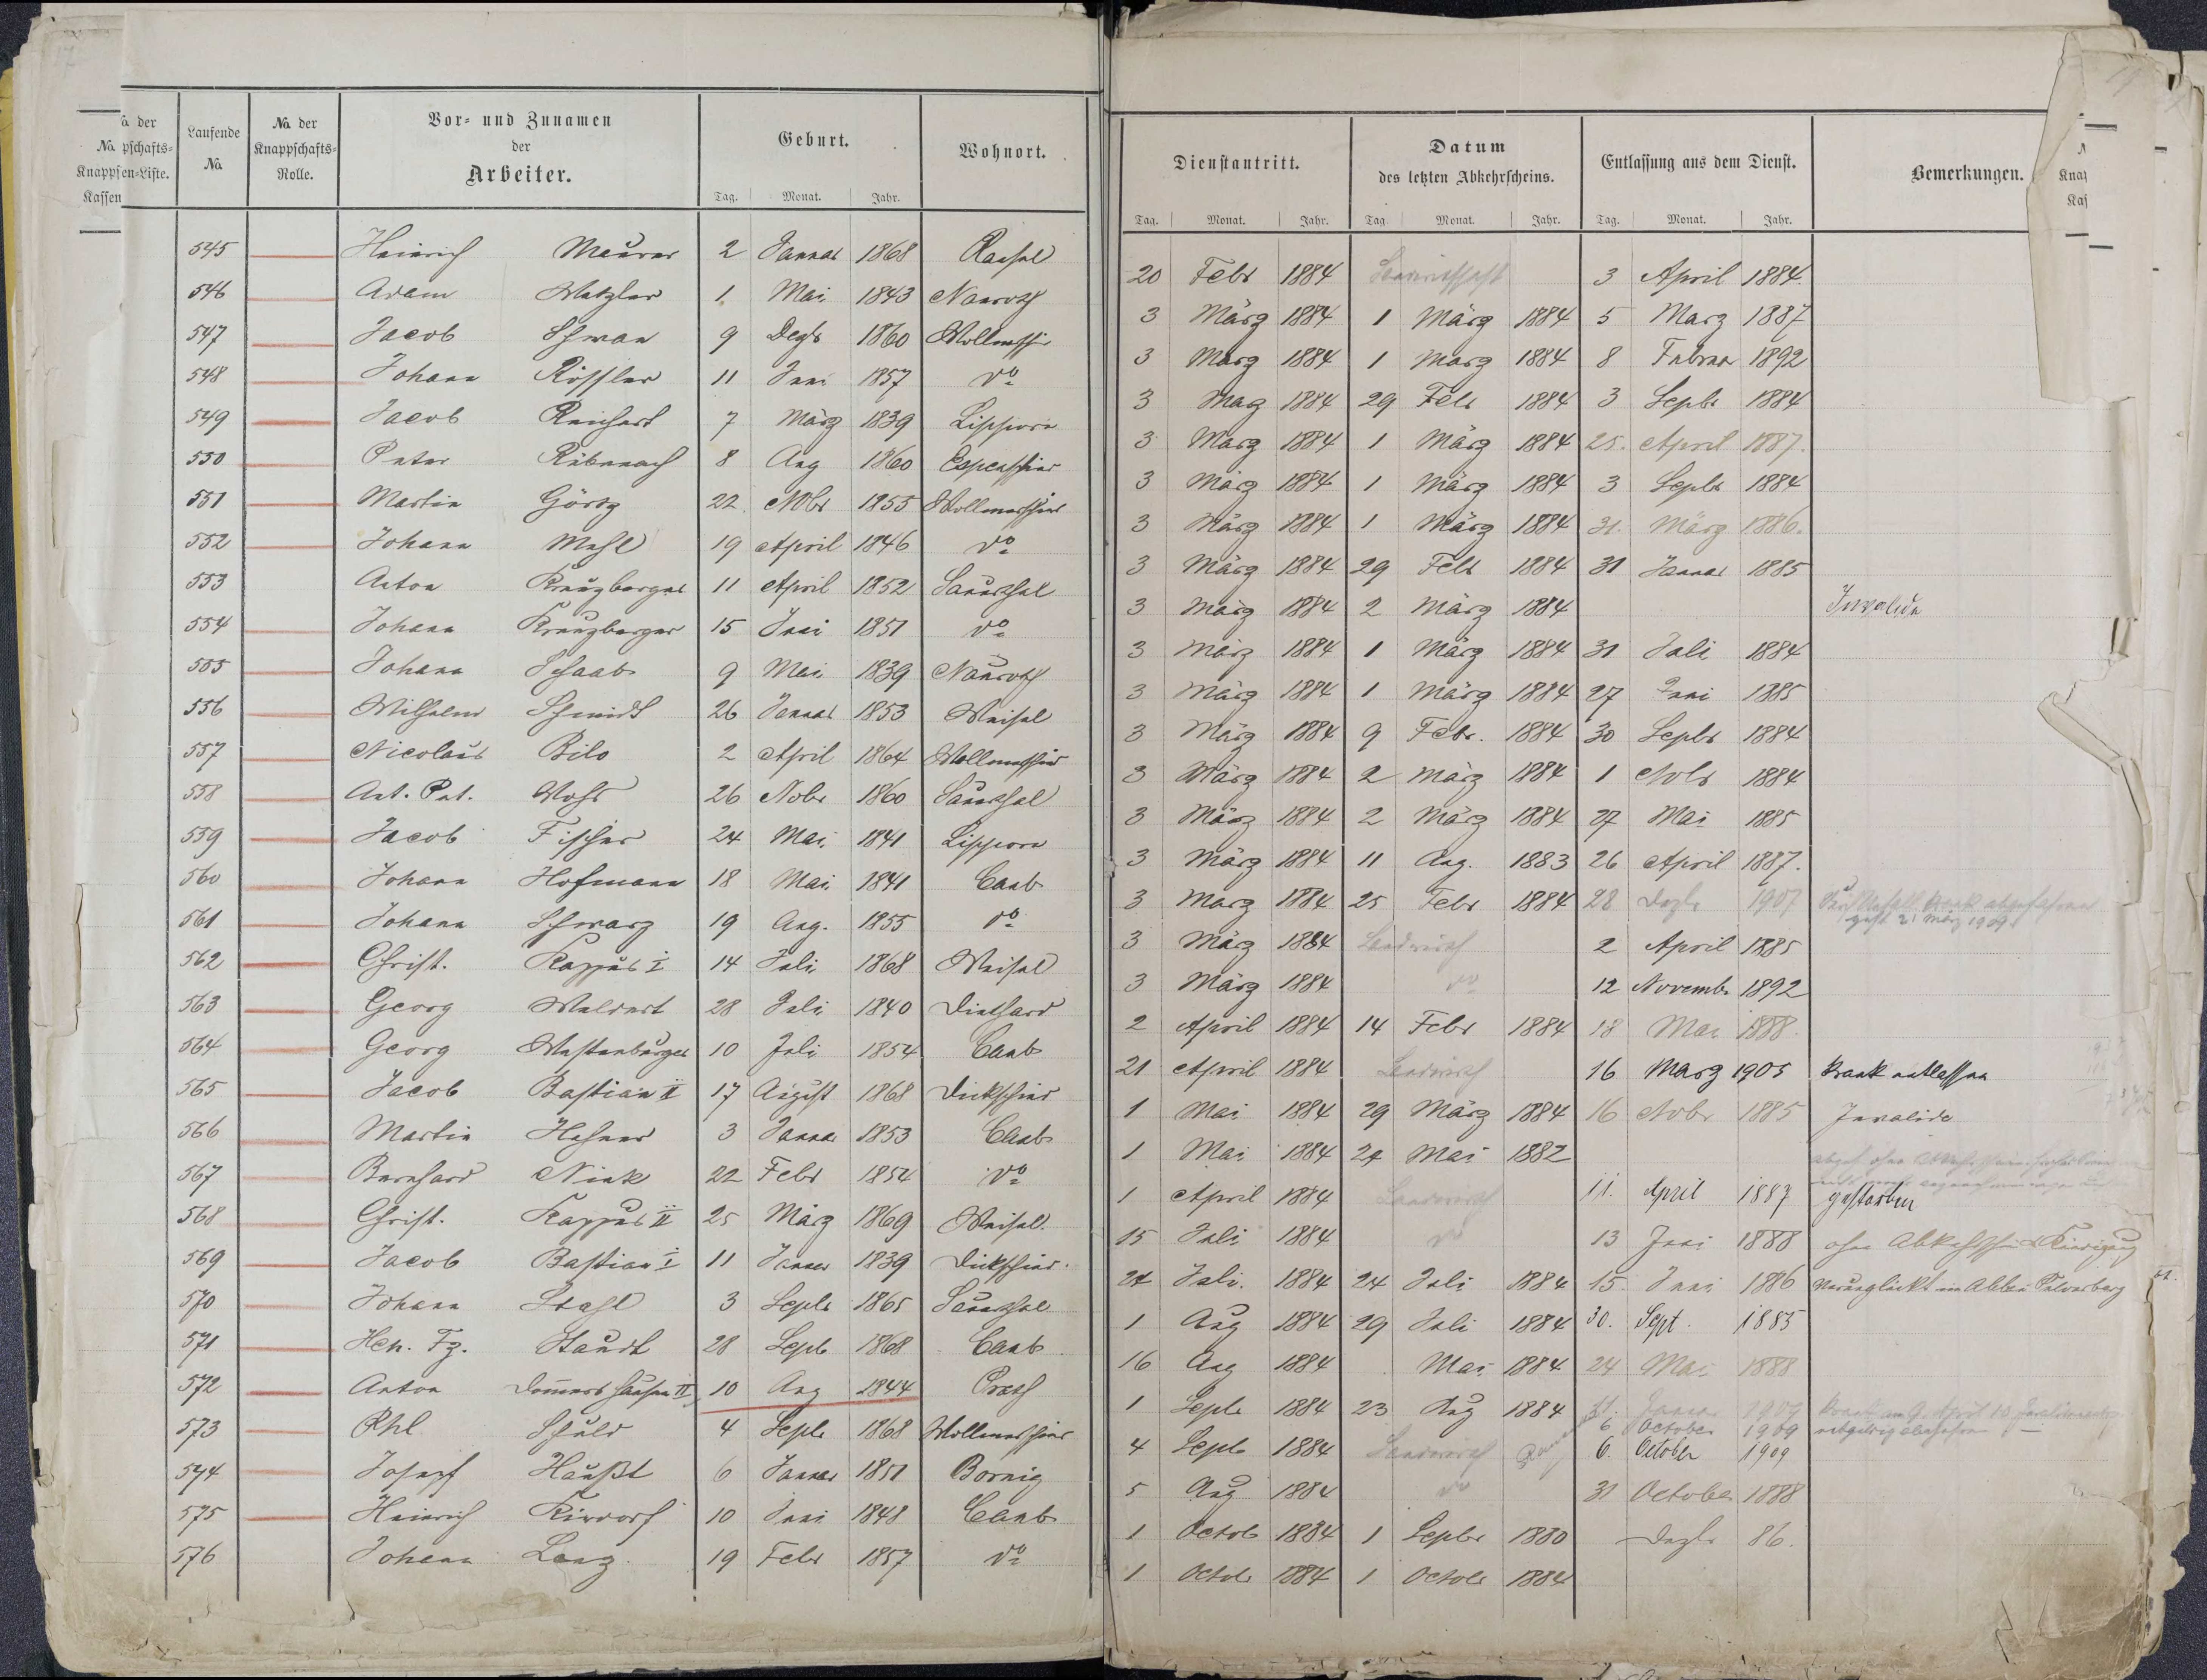 No. der Knappschafts-Knappen-Liste. Kassen
Laufende No.
No. der Knappschafts-Rolle.
Vor- und Zunamen der Arbeiter.
Geburt.
Tag. Monat. Jahr.
Wohnort.
Dienstantritt.
Tag. Monat. Jahr.
Datum des letzten Abkehrscheins.
Tag. Monat. Jahr.
Entlassung aus dem Dienst.
Tag. Monat. Jahr.
Bemerkungen.
545 Heinrich Meurer 2 Januar 1868 Ransel 20 Febr 1884 Landwirthschaft 3 April 1884.
546 Adam Metzler 1 Mai 1843 Nauroth 3 März 1884 1 März 1884 5 Marz 1887
547 Jacob Schwan 9 Dezb 1860 Wollmersch 3 Marz 1884 1 Marz 1884 8 Februar 1892
548 Johann Rössler 11 Juni 1857 do 3 Marz 1884 29 Febr 1884 3 Septb 1884
549 Jacob Reichert 7 März 1839 Lipporn 3 Marz 1884 1 März 1884 25. April 1887.
550 Peter Rübenach 8 Aug 1860 Espenschied 3 März 1884 1 März 1884 3 Septb 1884
551 Martin Görtz 22. Nobr 1855 Wollmerschied 3 März 1884 1 März 1884 31. März 1886.
552 Johann Mehl 19 April 1846 do 3 März 1884 29 Febr 1884 31 Januar 1885
553 Anton Kreuzberger 11 April 1852 Sauerthal 3 März 1884 2 März 1884 Invalide
554 Johann Kreuzberger 15 Juni 1851 do 3 März 1884 1 März 1884 31 Juli 1884
555 Johann Schaab 9 Mai 1839 Nauroth 3 März 1884 1 März 1884 27 Juni 1885
556 Wilhelm Schmidt 26 Januar 1853 Weisel 3 März 1884 9 Febr. 1884 30 Septbr 1884
557 Nicolaus Bilo 2 April 1864 Wollmerschied 3 März 1884 2 März 1884 1 Nobr 1884
558 Ant. Pet. Mohr 26 Nobr 1860 Sauerthal 3 März 1884 2 März 1884 27 Mai 1885
559 Jacob Fischer 24 Mai 1841 Lipporn 3 März 1884 11 Aug. 1883 26 April 1887.
560 Johann Hofmann 18 Mai 1841 Caub 3 Marz 1884 25 Febr 1884 28 Dezbr 1907
561 Johann Schwarz 19 Aug. 1855 do 3 März 1884 Landwirth 2 April 1885
562 Christ. Kappus I 14 Juli 1868 Weisel 3 März 1884 do 12 Novemb. 1892
563 Georg Meldert 28 Juli 1840 Diethard 2 April 1884 14 Febr 1884 18 Mai 1888.
564 Georg Westenburger 10 Juli 1854 Caub 21 April 1884 Landwirth 16 Marz 1905 krank entlassen
565 Jacob Bastian II 17 August 1868 Dickschied 1 Mai 1884 29 März 1884 16 Nobr 1885 Invalide
566 Martin Hefner 3 Januar 1853 Caub 1 Mai 1884 24 Mai 1882
567 Bernhard Nink 22 Febr 1854 do 1 April 1884 Landwirth 11. April 1887 gestorben
568 Christ. Kappus II 25 März 1869 Weisel. 15 Juli 1884 do 13 Juni 1888 ohne Abkehrschein & Kündigung
569 Jacob Bastian I 11 Januar 1839 Dickschied. 24 Juli. 1884 24 Juli 1884 15. Juni 1886 verunglückt
570 Johann Stahl 3 Septb 1865 Sauerthal 1 Aug 1884 29 Juli 1884 30. Sept. 1885
571 Hch. Fz. Staudt 28 Septb 1868 Caub 16 Aug 1884 Mai 1884 24 Mai 1888
572 Anton Dommershausen II 10 Aug 1844 Prath 1 Septb 1884 23 Aug 1884 31. Januar 1907
573 Phl Schuld 4 Septb 1868 Wollmerschied 4 Septb 1884 Landwirth 6. October 1909
6 October 1909
574 Joseph Haußt 6 Januar 1851 Bornig 5 Aug 1884 do 31 October 1888
575 Heinrich Kirdorf 10 Juni 1848 Caub 1 Octob 1884 1 Septbr 1880 Dezbr 86.
576 Johann Lanz. 19 Febr 1857 do 1 Octob 1884 1 Octob 1884